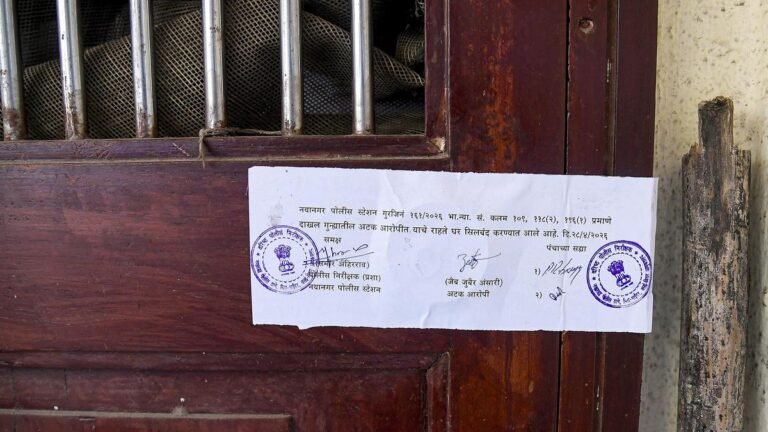 नयानगर पोलीस स्टेशन गुरजिनं १६१/२०२६ भा.न्या. सं. कलम १०९, ११८(२), १९६(१) प्रमाणे
दाखल गुन्ह्यातील अटक आरोपीत याचे राहते घर सिलचंद करण्यात आले आहे. दि.२८/४/२०२६
समक्ष पंचाच्या सह्या
अहिरराव
पोलिस निरीक्षक (प्रशा) (जेब जुबेर अंसारी) १)
नयानगर पोलीस स्टेशन अटक आरोपी २)